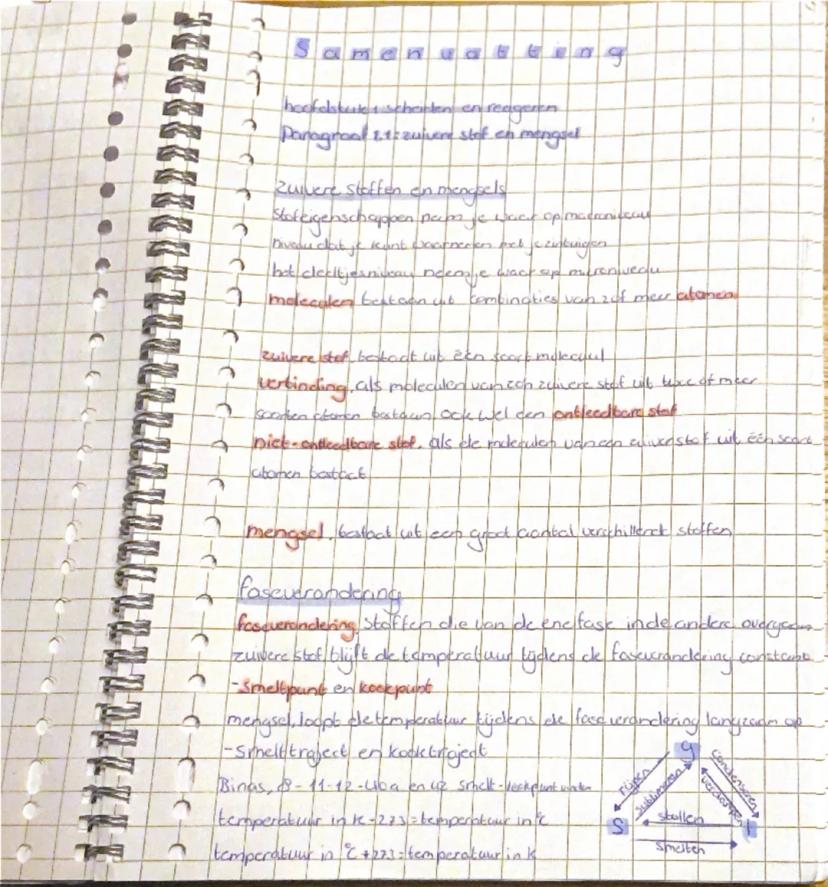 Samenvatting
hoofdstuk 1 scheiden en reageren
Paragraaf 1.1: zuivere stof en mengsel
zuivere stoffen en mengsels
stofeigenschappen neem je waar op macroniveau
niveau dat je kunt waarnemen met je zintuigen
het deeltjesniveau neem je waar op microniveau
moleculen bestaan uit combinaties van 2 of meer atomen
zuivere stof, bestaat uit één soort molecuul
verbinding, als moleculen van een zuivere stof uit twee of meer
soorten atomen bestaan ook wel een ontleedbare stof
niet-ontleedbare stof, als de moleculen van een zuivere stof uit één soort
atomen bestaat
mengsel, bestaat uit een groot aantal verschillende stoffen
faseverandering
faseverandering, stoffen die van de ene fase in de andere overgaan
zuivere stof, blijft de temperatuur tijdens de faseverandering constant
-smeltpunt en kookpunt
mengsel, loopt de temperatuur tijdens de faseverandering langzaam op
-smelttraject en kooktraject
Binas, 8-11-12-40a en 42 smelt-kookpunt
temperatuur in K - 273 = temperatuur in °C
temperatuur in °C + 273 = temperatuur in K
g
rijpen
sublimeren
condenseren
verdampen
s
stollen
l
smelten